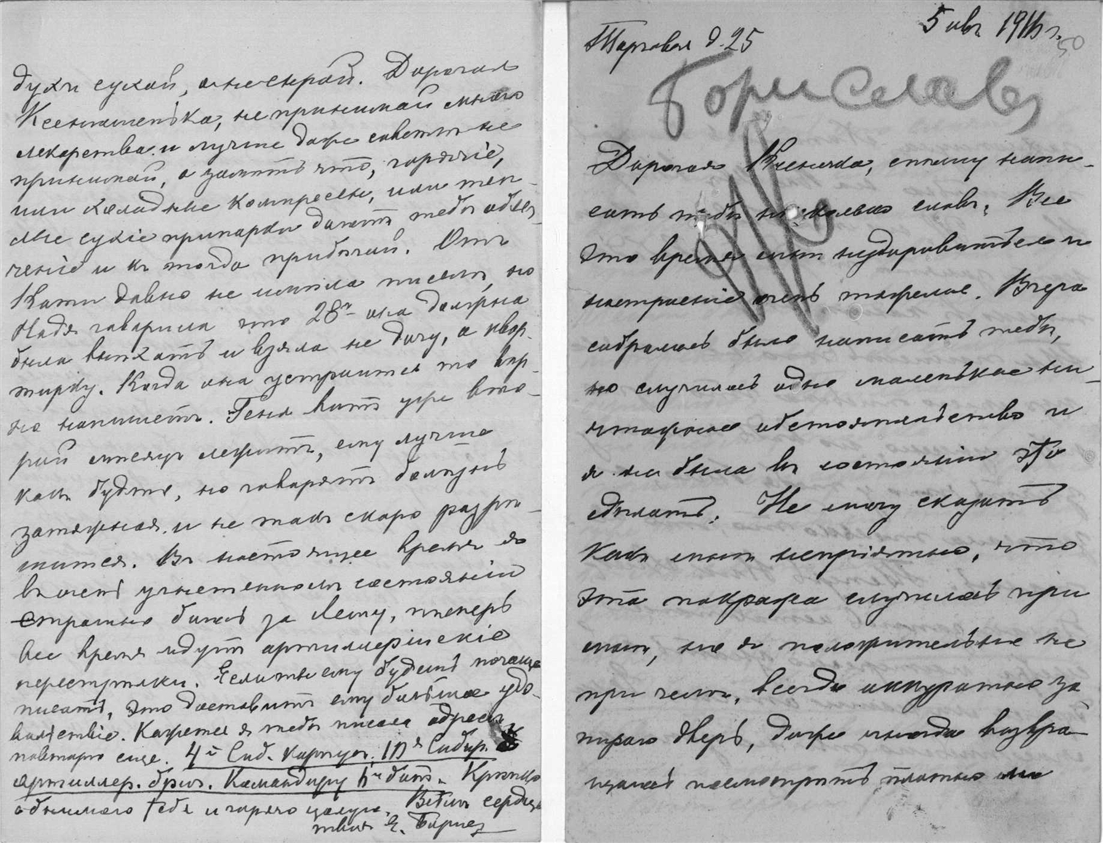 духи сухой, а не сырой. Дорогая
Ксенюшенька, не принимай много
лекарства и лучше даже совсем не
принимай, а заметь что, горячие,
или холодные компрессы, или теп-
лые сухие припарки дают тебе облег-
чение и к тогда прибегай. Отъ
Кати давно не имела писемъ, но
Надя говорила что 28го она должна
была выехать и взяла не дачу, а квар-
тиру. Когда она устроится то вер-
но напишетъ. Геня вотъ уже вто-
рой месяцъ лежитъ, ему лучше
какъ будто, но говорятъ болезнь
затяжная и не такъ скоро разре-
шится. Въ настоящее время я
въ очень угнетенномъ состояніи
страшно боюсь за Лелу, теперь
все время идутъ артиллерійскіе
перестрелки. Если ты ему будешь почаще
писать, это доставитъ ему большое удо-
вольствіе. Кажется я тебе писала адресъ
повторю еще. 4й Сиб. корпус. 10я Сибир.
артиллер. бриг. Командиру 6й бат. Крепко
обнимаю тебя и горячо целую. Всемъ сердцемъ
твоя Е. Борисл
Торговая д. 25
5 авг 1916 г.
50
Бориславъ
Дорогая Ксенечка, спешу напи-
сать тебе несколько словъ. Все
это время мне нездоровится и
настроеніе очень тяжелое. Вчера
собралась было написать тебе,
но случилось одно маленькое ни-
чтожное обстоятельство и
я не была въ состояніи это
сделать. Не могу сказать
какъ мне непріятно, что
эта покража случилась при
мне, но я положительно не
при чемъ, всегда аккуратно за
пираю дверь, даже иногда возвра
щалась посмотреть плотно ли